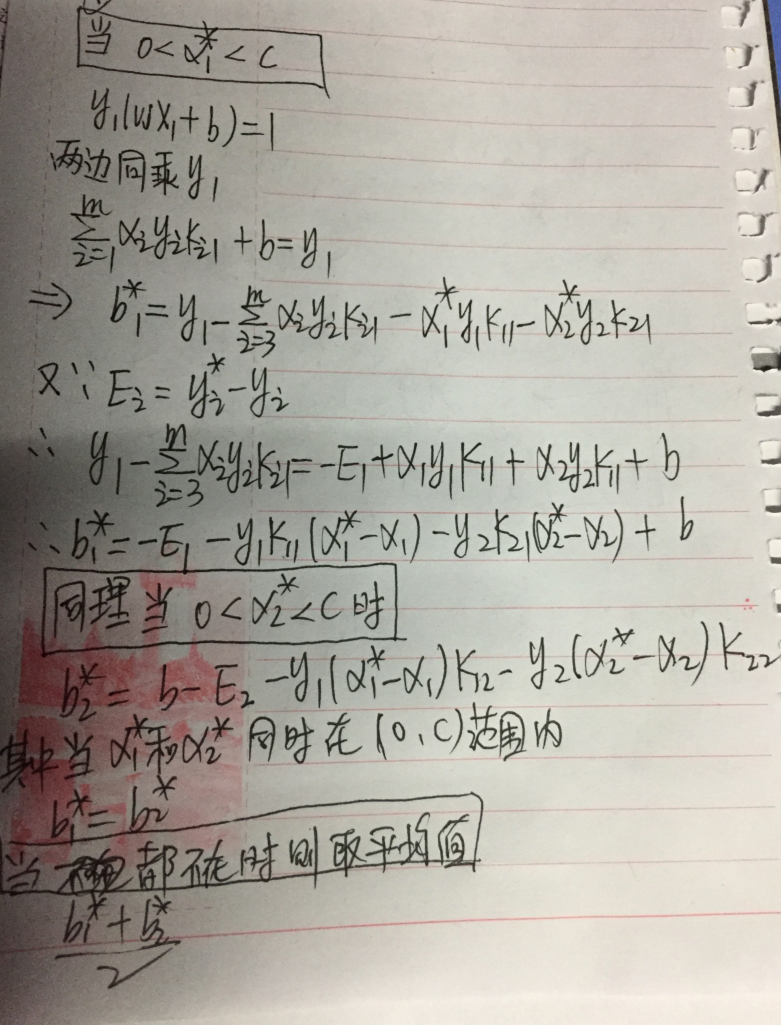 当 0<α₁*<C
y₁(wx₁+b)=1
两边同乘y₁
∑ᵢ₌₁ᵐ αᵢyᵢkᵢ₁ + b = y₁
⇒ b₁* = y₁ - ∑ᵢ₌₃ᵐ αᵢyᵢkᵢ₁ - α₁*y₁k₁₁ - α₂*y₂k₂₁
又∵ Eᵢ = yᵢ* - yᵢ
∴ y₁ - ∑ᵢ₌₃ᵐ αᵢyᵢkᵢ₁ = -E₁ + α₁y₁k₁₁ + α₂y₂k₁₁ + b
∴ b₁* = -E₁ - y₁k₁₁(α₁*-α₁) - y₂k₂₁(α₂*-α₂) + b
同理当 0<α₂*<C 时
b₂* = b - E₂ - y₁(α₁*-α₁)k₁₂ - y₂(α₂*-α₂)k₂₂
其中当 α₁*和α₂* 同时在 (0,C)范围内
b₁* = b₂*
当 都不在时则取平均值
(b₁*+b₂*)/2